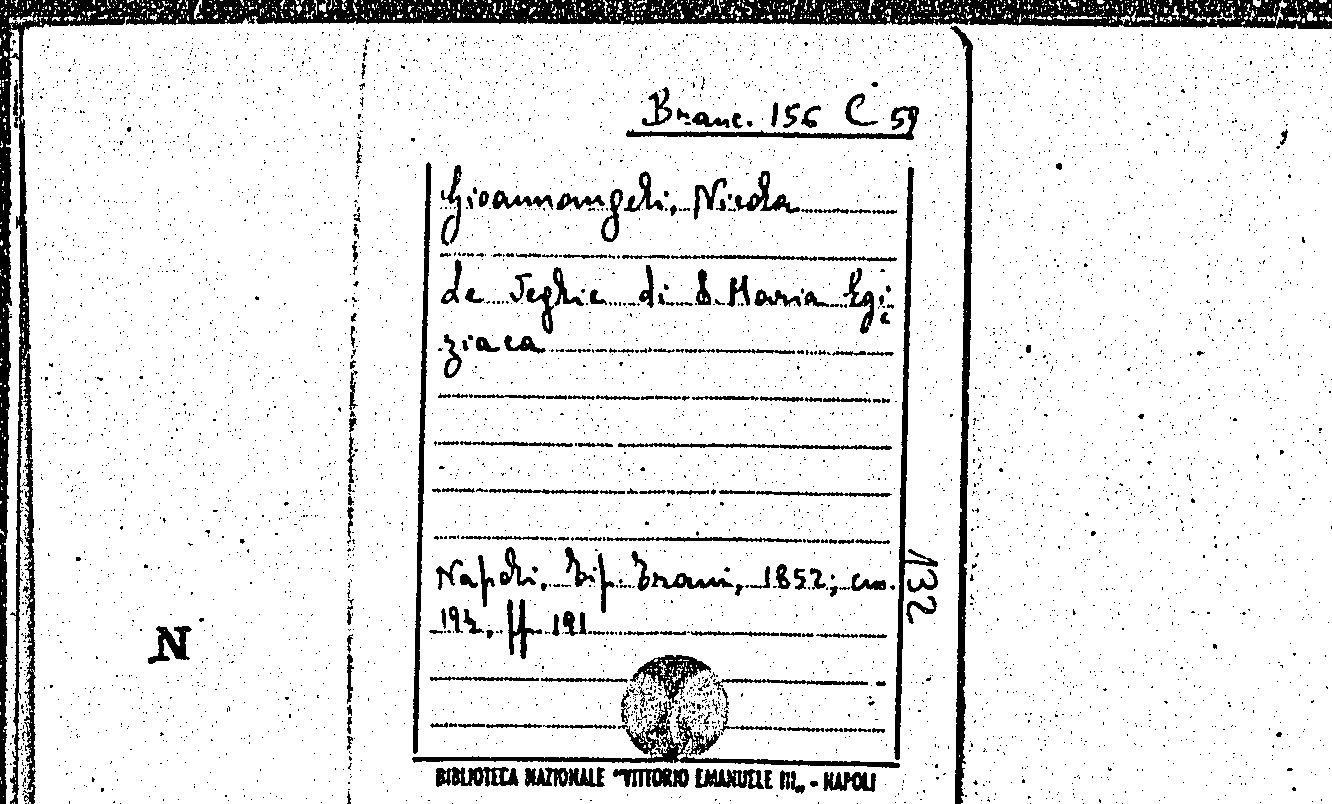 Branc. 156 C 59
Gioannangeli, Nicola
Le Veglie di S. Maria Egi
ziaca
Napoli, Tip. Trani, 1852; cm.
pp. 191
132
N
BIBLIOTECA NAZIONALE "VITTORIO EMANUELE III„ - NAPOLI